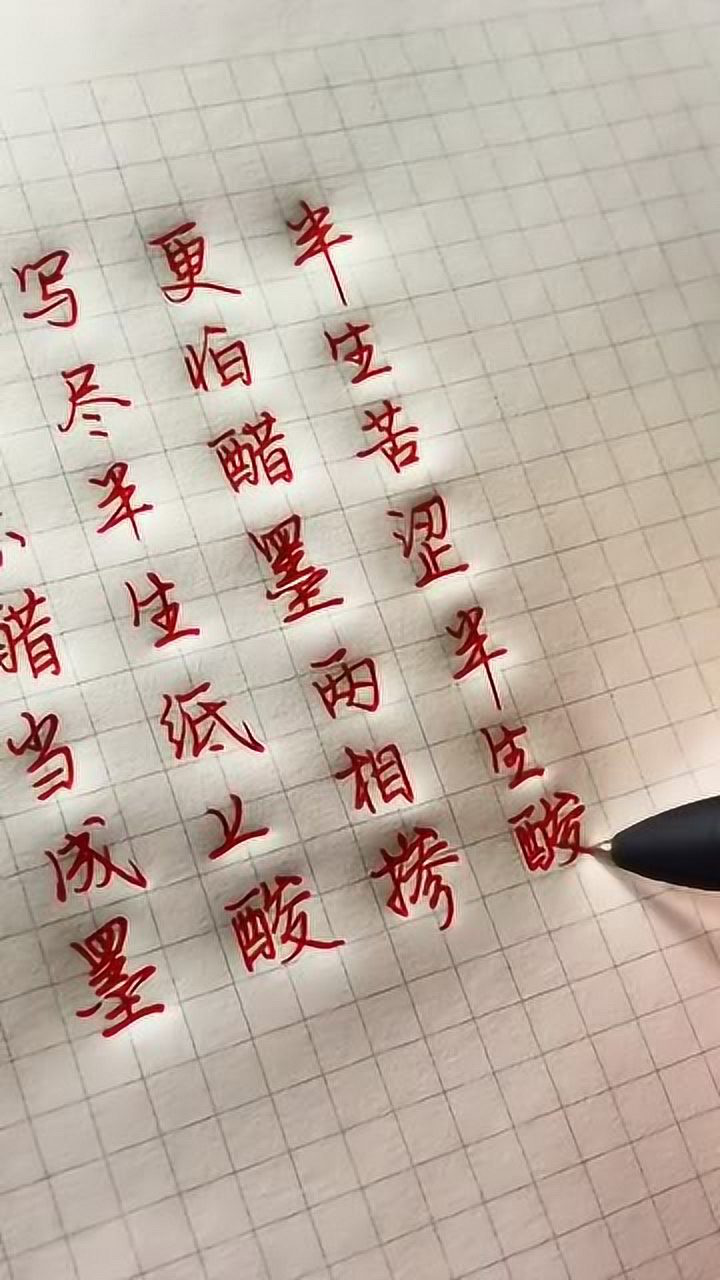 醋当成墨
写尽半生纸上酸
更怕醋墨两相掺
半生苦涩半生酸